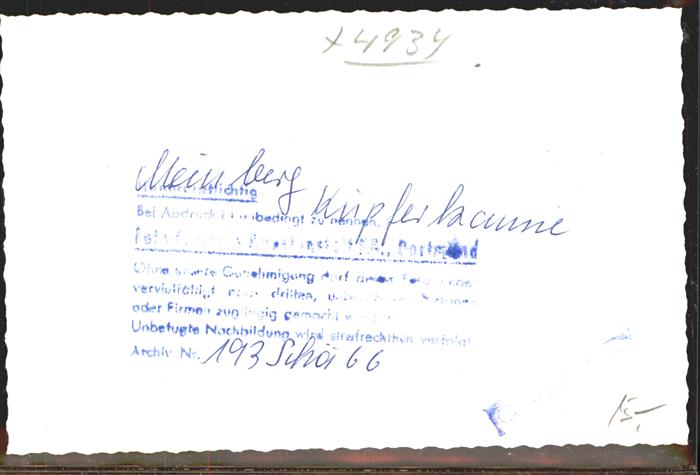 x 4934
Meinberg
Kupferkanne
Bei Abdruck unbedingt zu nennen:
Dortmund
Ohne unsere Genehmigung darf dieses Foto weder
vervielfältigt noch dritten, Personen
oder Firmen zugängig gemacht
Unbefugte Nachbildung wird strafrechtlich verfolgt
Archiv Nr. 193 Schä 66
15,-